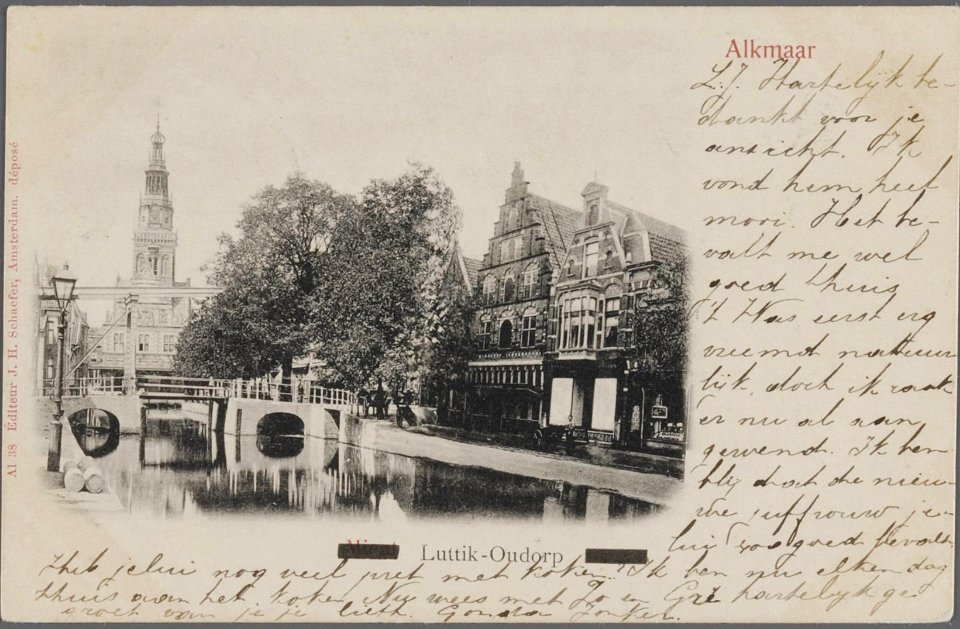 Alkmaar
L.J. Hartelijk be-
dankt voor je
ansicht. Ik
vond hem heel
mooi. Het be-
valt me wel
goed thuis
't Was eerst erg
vreemd natuur
lijk, doch ik raak
er nu al aan
gewend. Ik ben
blij dat de nieu-
we juffrouw je-
lui zoo goed bevalt.
Heb jelui nog veel pret met koken? Ik ben nu elken dag
thuis aan het koken. Nu wees met Jo en Gré hartelijk ge
groet van je je liefh. Gonda Jonker.
Luttik-Oudorp
Al 38 Éditeur J. H. Schaefer, Amsterdam. déposé